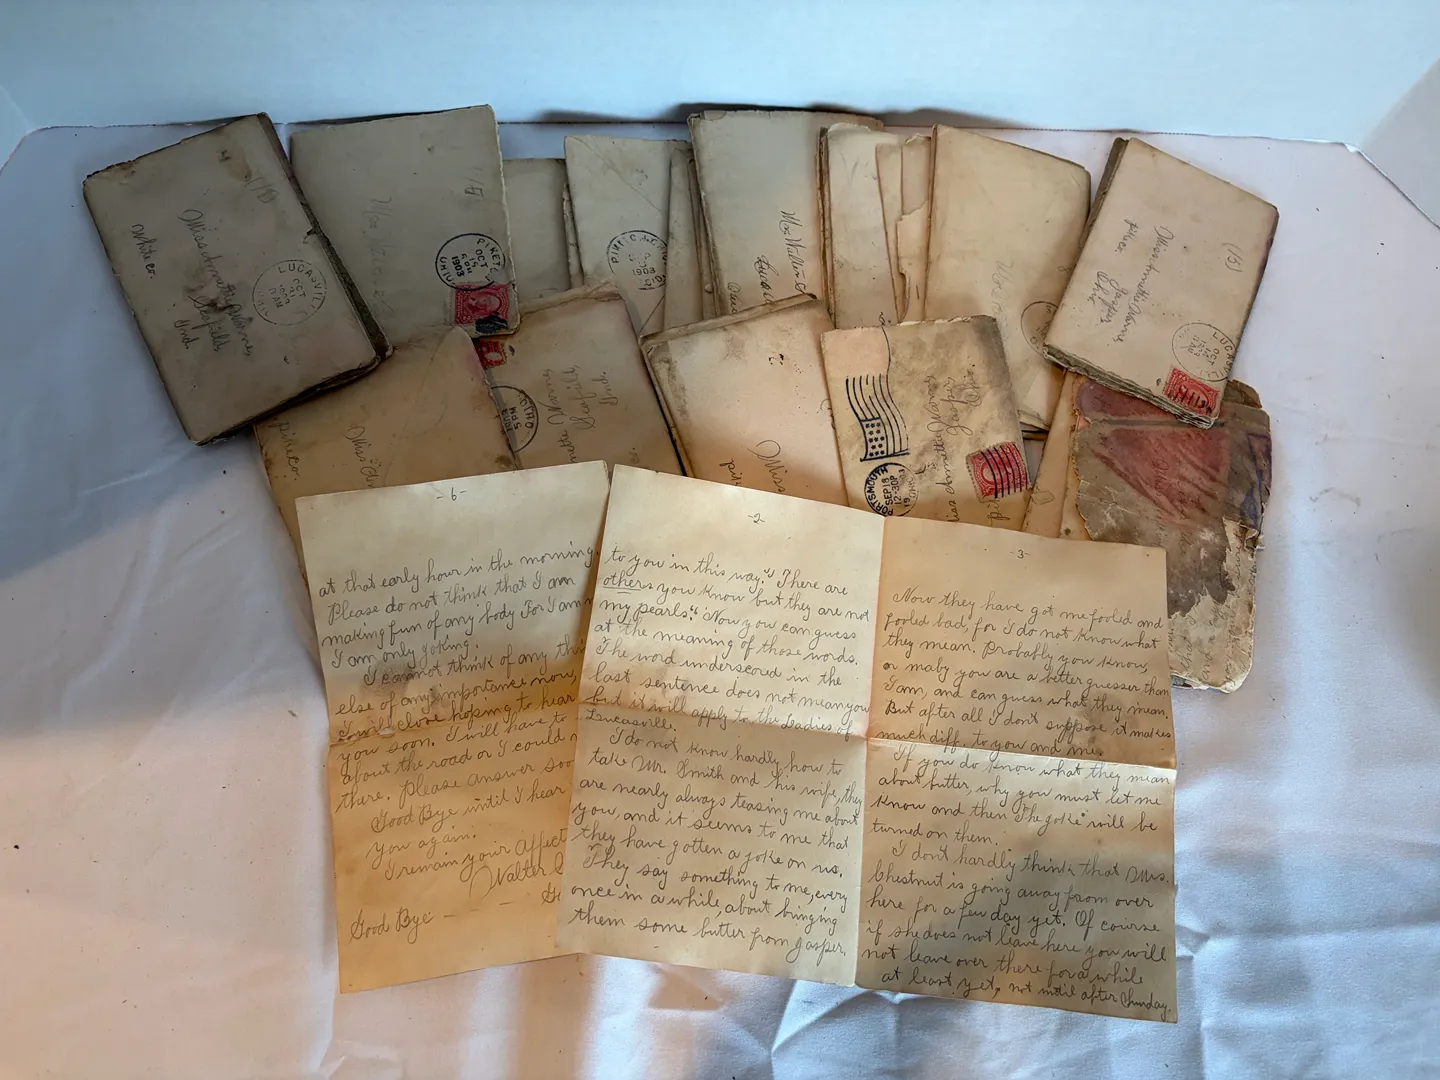 Miss Annettie Warner,
Seafield,
White co.
Ind.
LUCASVILLE
OCT
1903
PIKETON
OCT
15
1903
OHIO
1903
Mr Walter
Lucas
(13)
Miss Annettie Warner,
Jasper
pike co.
Ohio
LUCASVILLE
OCT
Seafield,
Ind.
OHIO
Miss
pike co.
Miss
PORTSMOUTH
SEP 18
12-30P
OHIO
Jasper
-6-
at that early hour in the morning.
Please do not think that I am
making fun of any body For I am
I am only joking.
I cannot think of any thi
else of any importance now,
I will close hoping to hear
you soon. I will have to
about the road or I could n
there. Please answer soo
Good Bye until I hear
you again.
I remain your Affect
Walter
Good Bye
-2-
to you in this way." There are
others you know but they are not
my pearls." Now you can guess
at the meaning of those words.
The word underscored in the
last sentence does not mean you
but it will apply to the Ladies of
Lucasville.
I do not know hardly how to
take Mr. Smith and his wife, they
are nearly always teasing me about
you, and it seems to me that
they have gotten a joke on us.
They say something to me, every
once in a while, about bringing
them some butter from Jasper.
-3-
Now they have got me fooled and
fooled bad, for I do not know what
they mean. Probably you know,
or maby you are a better guesser than
I am, and can guess what they mean.
But after all I don't suppose it makes
much diff. to you and me.
If you do know what they mean
about butter, why you must let me
know and then The joke will be
turned on them.
I don't hardly think that Mrs.
Chestnut is going away from over
here for a few day yet. Of course
if she does not leave here you will
not leave over there for a while
at least, yet, not until after Sunday.